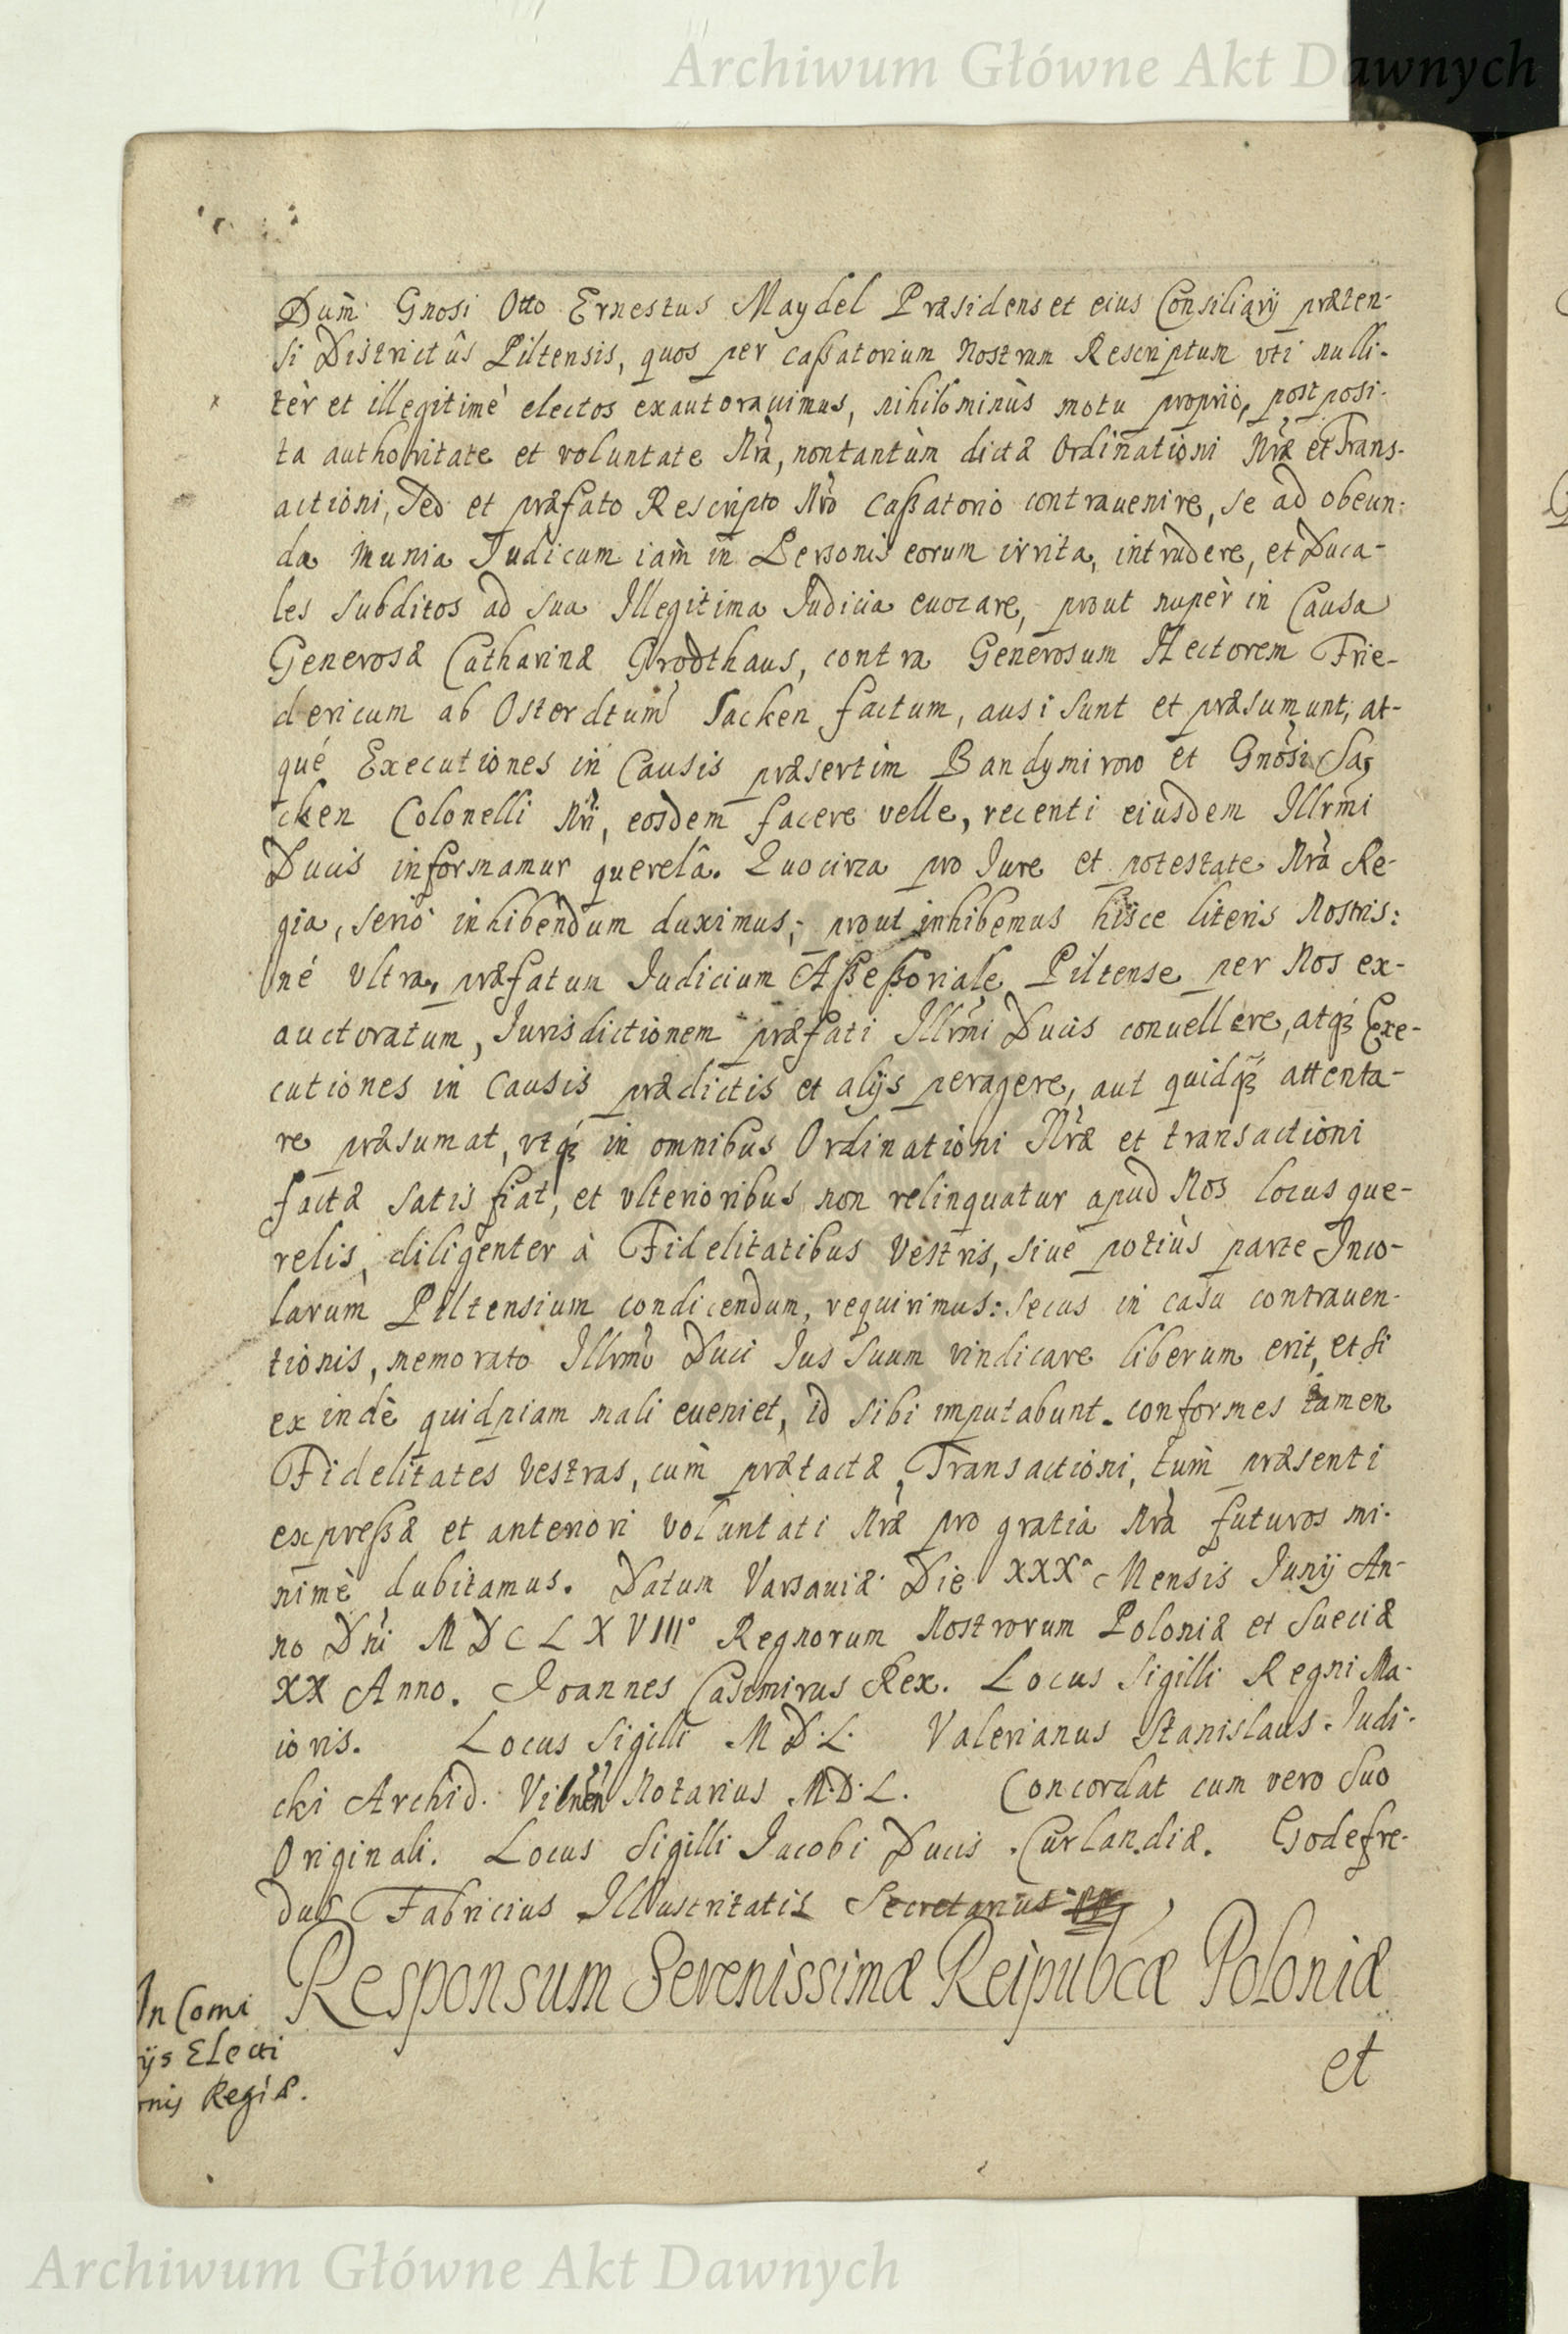 Archiwum Główne Akt Dawnych
Dum̃ Gnosi Otto Ernestus Maydel Præsidens et eius Consiliarÿ præten-
si Districtûs Piltensis, quos per caßatorium Nostrum Rescriptum vti nulli-
tèr et illegitimè electos exautorauimus, nihilominùs motu proprio, postposi-
ta authoritate et voluntate Nrà, nontantùm dictæ Ordinationi Nræ et Trans-
actioni, Sed et præfato Rescripto Nrõ Caßatorio contrauenire, se ad obeun-
da munia Judicum iam̃ in Personis eorum irrita, intrudere, et Duca-
les Subditos ad sua Illegitima Judicia euocare, prout nupèr in Causa
Generosæ Catharinæ Grodthaus, contra Generosum Hectorem Frie-
dericum ab Osten dictum Sacken factum, ausi sunt et præsumunt, at-
qué Executiones in Causis præsertim Bandymirow et Gnosi Sa-
cken Colonelli Nri, eosdem facere velle, recenti eiusdem Illrmi
Ducis informamur querelâ. Quocirca pro Jure et potestate Nrà Re-
gia, seriò inhibendum duximus, prout inhibemus hisce literis Nostris:
né vltra, præfatum Judicium Aßeßoriale Piltense per Nos ex-
auctoratum, Jurisdictionem præfati Illrmi Ducis conuellere, atqꝫ Exe-
cutiones in Causis prædictis et alÿs peragere, aut quidqꝫ attenta-
re præsumat, vtqꝫ in omnibus Ordinationi Nræ et transactioni
factæ satis fiat, et vlterioribus non relinquatur apud Nos locus que-
relis, diligenter à Fidelitatibus Vestris, siue potiùs parte Inco-
larum Piltensium condicendum, requirimus: Secus in casu contrauen-
tionis, memorato Illrmo Duci Jus Suum vindicare liberum erit, et si
ex indè quidpiam mali eueniet, id sibi imputabunt. conformes tamen
Fidelitates Vestras, cum̀ prætactæ Transactioni, tum̀ præsenti
expreßæ et anteriori voluntati Nræ pro gratia Nrà futuros mi-
nimè dubitamus. Datum Varsauiæ Die XXXª Mensis Junÿ An-
no Dni MDCLXVIII° Regnorum Nostrorum Poloniæ et Sueciæ
XX Anno. Joannes Casimirus Rex. Locus Sigilli Regni Ma-
ioris. Locus Sigilli M.D.L. Valerianus Stanislaus Judi-
cki Archid. Vilnen Notarius M.D.L. Concordat cum vero Suo
Originali. Locus Sigilli Jacobi Ducis Curlandiæ. Godefre-
dus Fabricius Illustritatis Secretarius
Responsum Serenissimæ Reipubcæ Poloniæ
In Comi
ÿs Electi
onis Regiæ.
et
Archiwum Główne Akt Dawnych